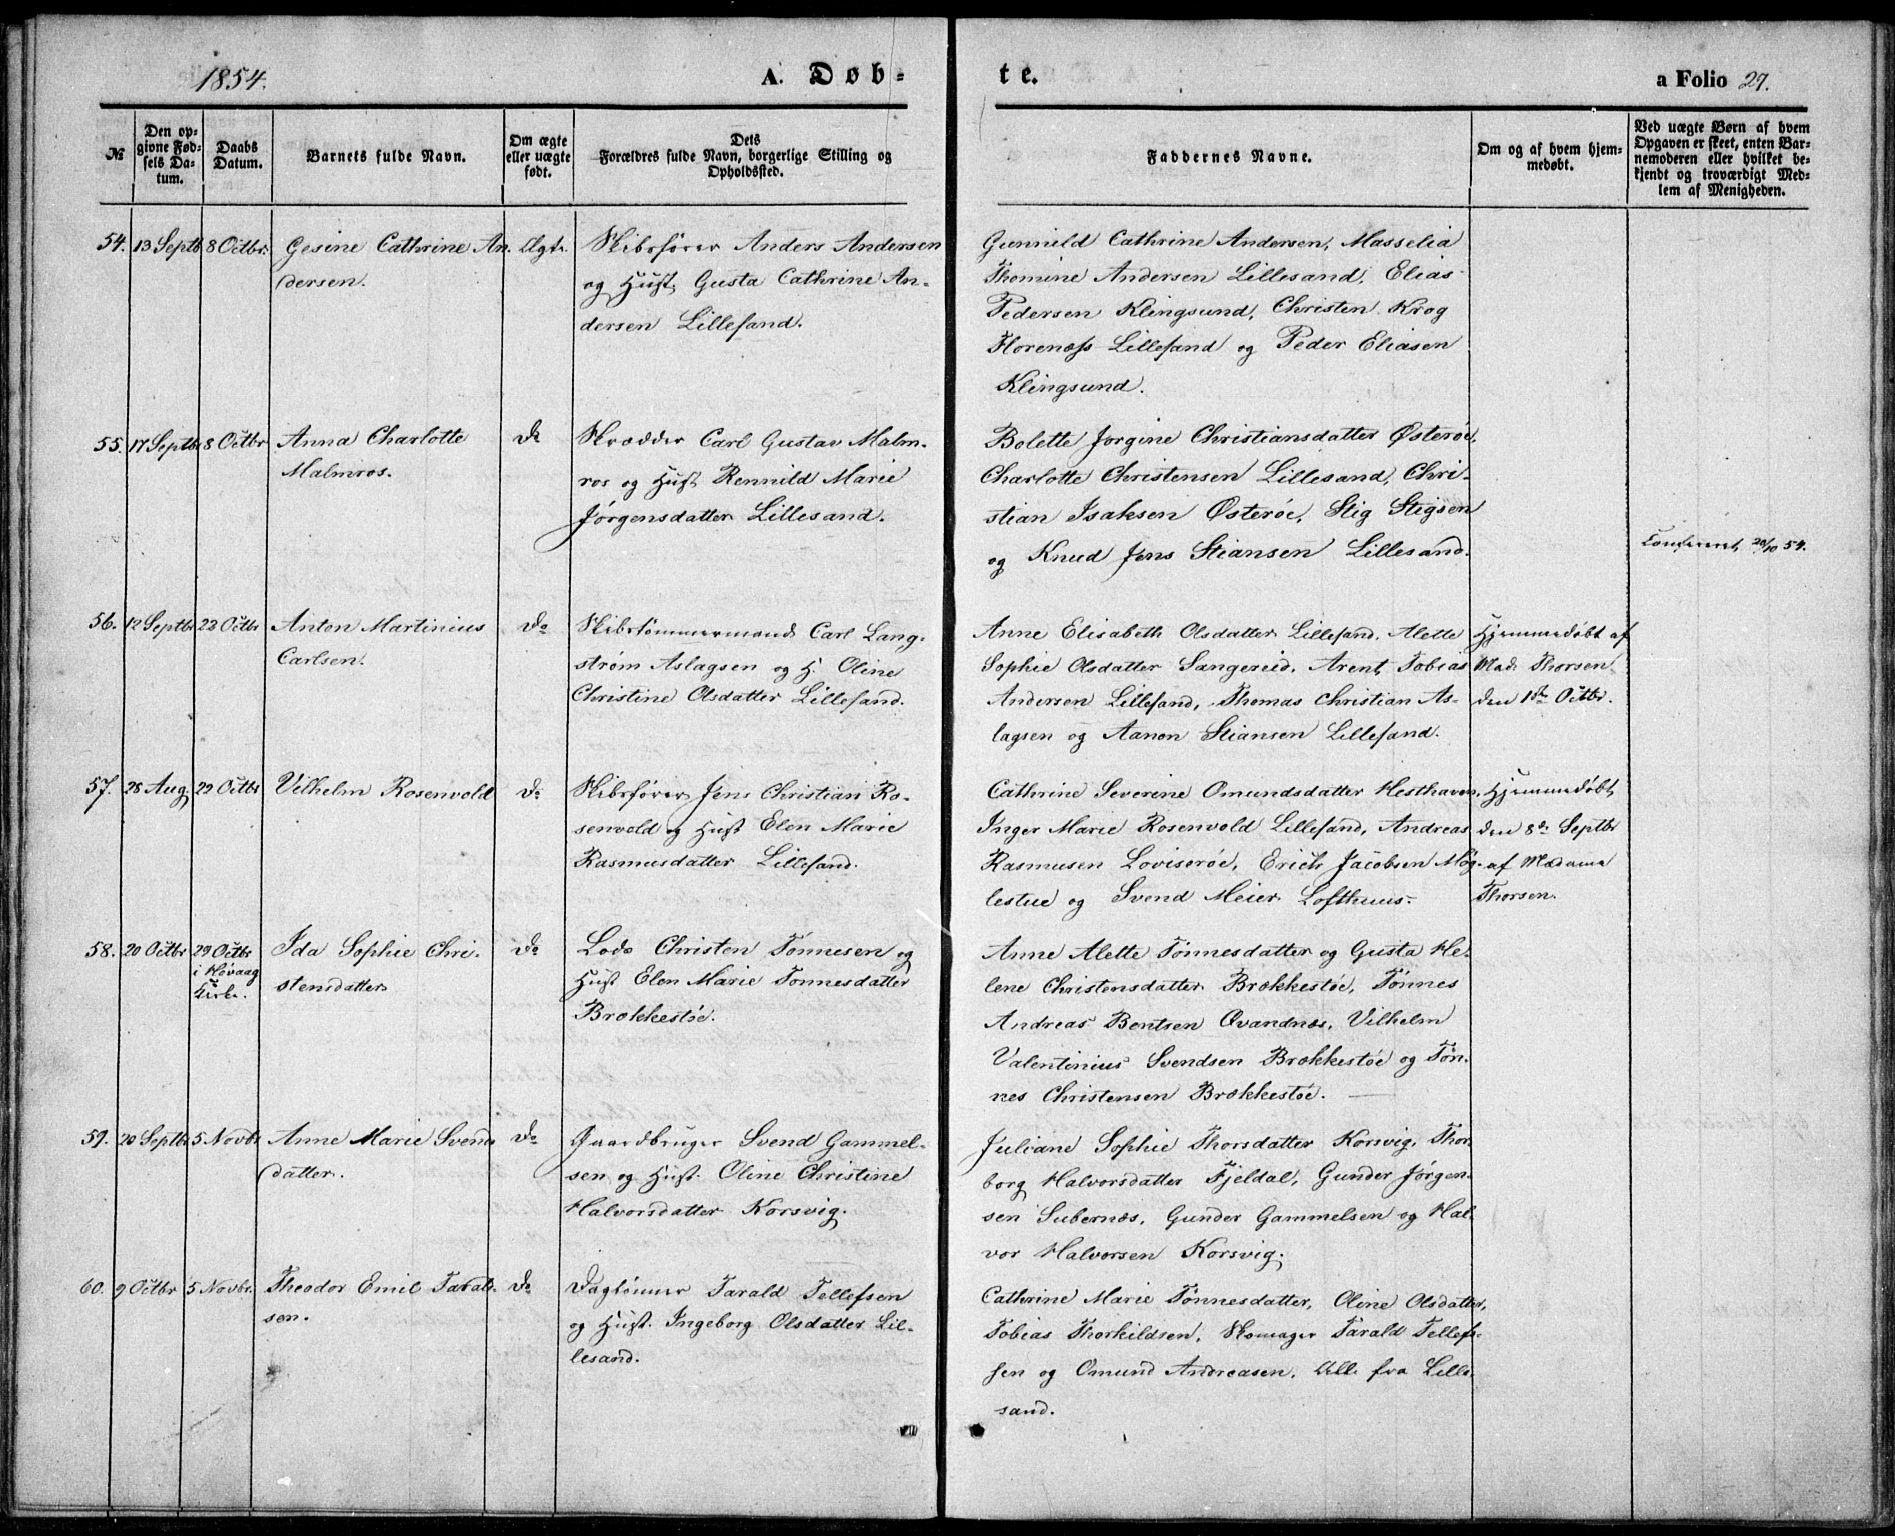 1854.
A. Døb-
te.
a Folio 27.
№
Den op-
givne Fød-
sels Da-
tum.
Daabs
Datum.
Barnets fulde Navn.
Om ægte
eller uægte
født.
Dets
Forældres fulde Navn, borgerlige Stilling og
Opholdssted.
Faddernes Navne.
Om og af hvem hjem-
medøbt.
Ved uægte Børn af hvem
Opgaven er skeet, enten Bar-
nemoderen eller hvilket be-
kjendt og troværdigt Med-
lem af Menigheden.
54.
13 Septb
8 Octbr.
Gesine Cathrine An-
dersen.
Ægte
Skibsfører Anders Andersen
og Hust. Gusta Cathrine An-
dersen Lillesand.
Gunnild Cathrine Andersen, Masselia
Thomine Andersen Lillesand, Elias
Pedersen Klingsund, Christen Krog
Florenæss Lillesand og Peder Eliasen
Klingsund.
55.
17 Septbr
8 Octbr
Anna Charlotte
Malmros.
Do
Skrædder Carl Gustav Malm-
ros og Hust. Rennild Marie
Jørgensdatter Lillesand.
Bolette Jorgine Christiansdatter Østerøe,
Charlotte Christensen Lillesand, Chri-
stian Isaksen Østerøe, Stig Stigsen
og Knud Jens Stiansen Lillesand.
Confereret 20/10 54.
56.
12 Septbr
22 Octbr
Anton Martinius
Carlsen.
Do
Skibstømmermand Carl Lang-
strøm Aslagsen og H. Oline
Christine Olsdatter Lillesand.
Anne Elisabeth Olsdatter Lillesand, Alette
Sophie Olsdatter Sangereid, Arent Tobias
Andersen Lillesand, Thomas Christian As-
lagsen og Aanon Stiansen Lillesand.
Hjemmedøbt af
Mad. Thorsen
den 1ste Octbr.
57.
28 Aug
29 Octbr
Vilhelm Rosenvold
Do
Skibsfører Jens Christian Ro-
senvold og Hust Elen Marie
Rasmusdatter Lillesand.
Cathrine Severine Omundsdatter Hesthaven,
Inger Marie Rosenvold Lillesand, Andreas
Rasmusen Loviserøe, Erich Jacobsen Møg-
lestue og Svend Meier Lofthuus.
Hjemmedøbt
den 8de Septbr
af Madame
Thorsen.
58.
20 Octbr
29 Octbr
i Høvaag
Kirke.
Ida Sophie Chri-
stensdatter
Do
Lods Christen Tønnesen og
Hust Elen Marie Tønnesdatter
Brækkestøe.
Anne Alette Tønnesdatter og Gusta He-
lene Christensdatter Brækkestøe, Tønnes
Andreas Bentsen Qvandnæs, Vilhelm
Valentinius Svendsen Brækkestøe og Tøn-
nes Christensen Brækkestøe.
59.
20 Septbr
5 Novbr
Anne Marie Svends
datter.
Do
Gaardbruger Svend Gammel-
sen og Hust. Oline Christine
Halvorsdatter Korsvig.
Juliane Sophie Thorsdatter Korsvig, Thor
borg Halvorsdatter Fjeldal, Gunder Jørgen-
sen Subernæs, Gunder Gammelsen og Hal-
vor Halvorsen Korsvig.
60.
9 Octbr
5 Novbr.
Theodor Emil Tarald-
sen.
Do
Daglønner Tarald Tellefsen
og Hust. Ingeborg Olsdatter Lil-
lesand.
Cathrine Marie Tønnesdatter, Oline Olsdatter,
Tobias Thorkildsen, Skomager Tarald Tellef-
sen og Omund Andreasen, Alle fra Lille-
sand.